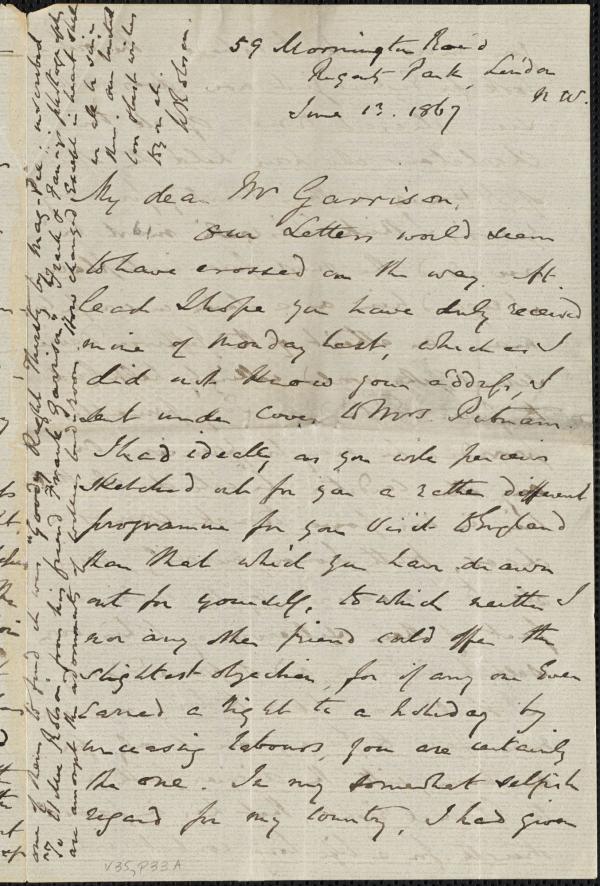 59 Mornington Road
Regents Park, London
N.W.
June 13. 1867
My dear Mr Garrison,
Our Letters would seem
to have crossed on the way. At
least I hope you have duly received
mine of Monday last, which as I
did not know your address, I
sent under cover to Mrs. Putnam.
I had ideally, as you will perceive
sketched out for you a rather different
programme for your visit to England
than that which you have drawn
out for yourself, to which neither I
nor any other friend could offer the
slightest objection, for if any one ever
earned a right to a holiday by
unceasing labours, you are certainly
the one. In my somewhat selfish
regard for my country, I had given
one of them to find it was "Goody Right Thirsty by Mag-Pie" inscribed
"To Eldee Robson from his friend Frank Garrison"
are amongst the adornments of
How changed Except in heart shall
we all be since
then. Our united
love & best wishes
to you all.
W Robson.
V35, P33A